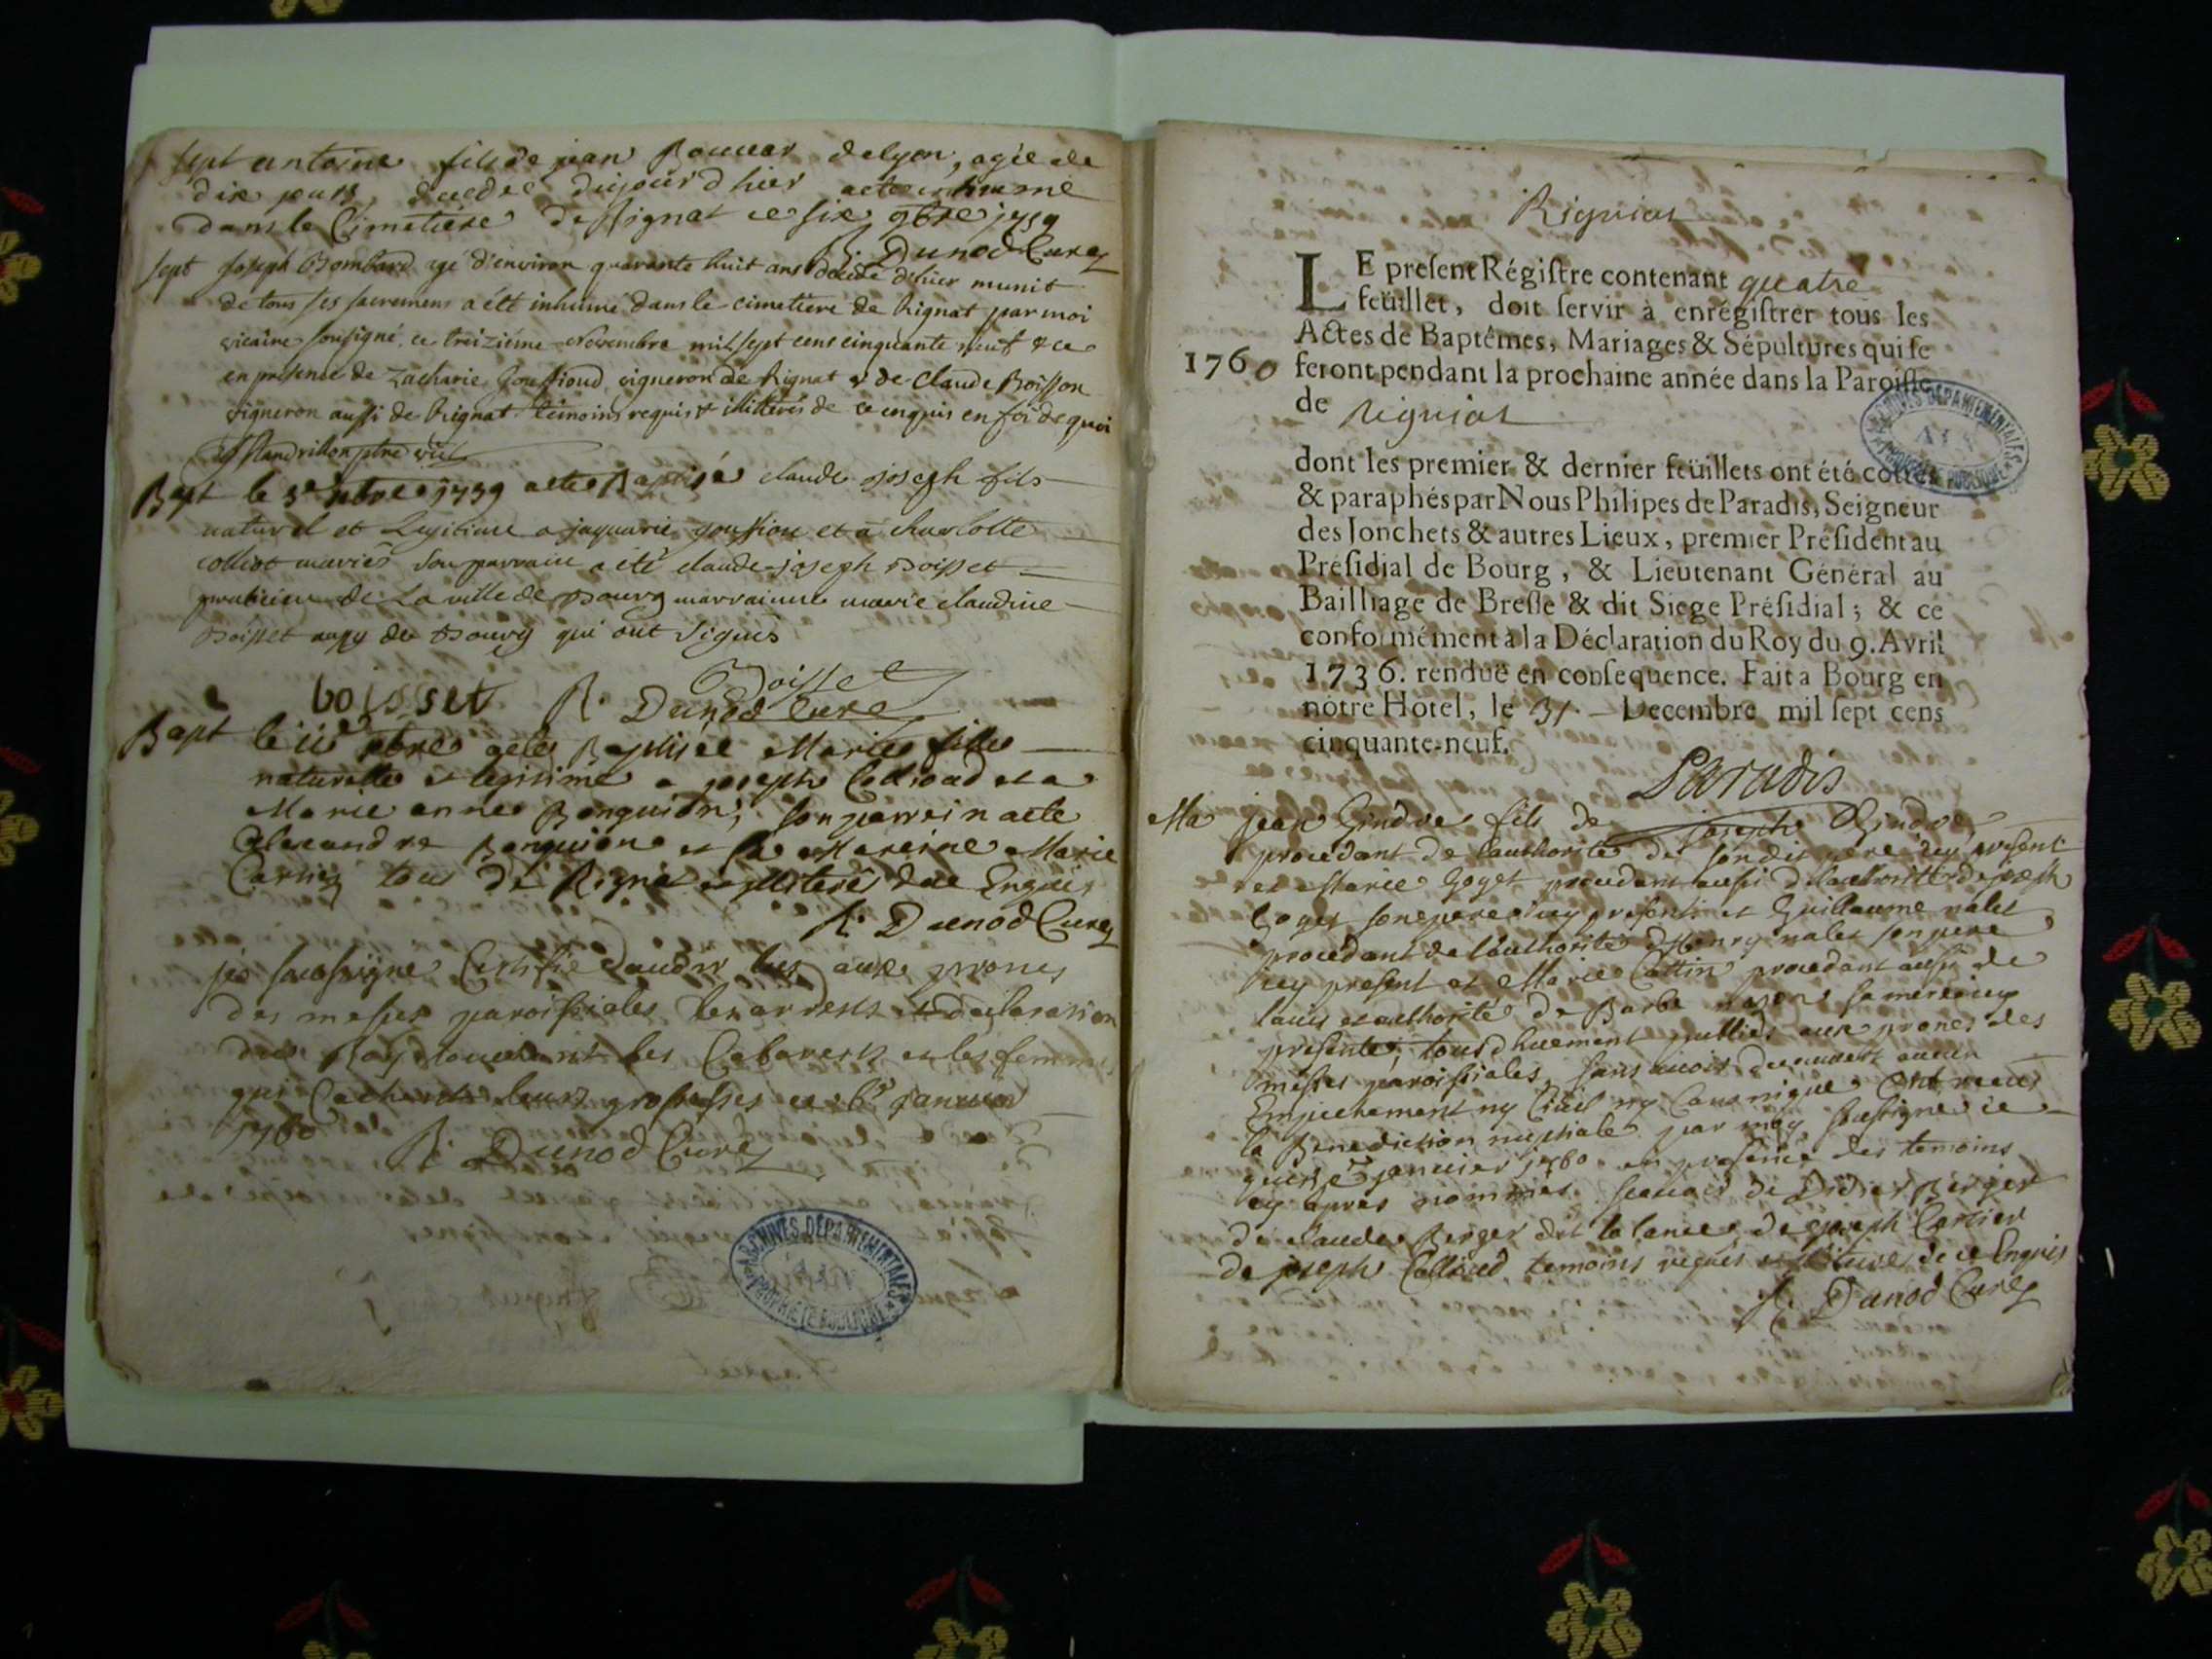 sept antoine fils de jean Bouvar de lyon, agée de
dix jours, decedé dujour d'hier aete inhumé
dans le Cimetiere de Rignat ce six 9bre 1759
R. Dunod Curé
sept joseph Bombard agé d'environ quarante huit ans décédé d'hier munit
de tous ses sacremens a été inhumé dans le cimetiere de Rignat par moi
vicaire sousigné, ce treizième Novembre mil sept cens cinquante neuf & ce
en présence de Zacharie Goussioud vigneron de Rignat & de Claude Boisson
vigneron aussi de Rignat témoins requis & illitérés de ce enquis en foi de quoi
Bapt le 3e xbre 1759 aete Baptisé claude joseph fils
naturel et Legitime a jaquarie goussion et a charlotte
colliot mariés son parrain a été claude-joseph Boisset
praticien de La ville de Bourg marraine marie claudine
Boisset aussy de Bourg qui ont signés
Boisset
boisset R. Dunod Curé
Bapt le xbre aete Baptisée Marie fille
naturelle et legitime a joseph Collioud et a
Marie anne Banguion, son parrein aete
Alexandre Banguion et sa Mareine Marie
Cartier tous de Rignat et illiterés de ce Enquis
R. Dunod Curé
je soussigné Certifie d'audir lus aux prones
des messes paroissiales les arrests et declaration
du Roy touchant les Cabarests et les femmes
qui Cachent leurs grossesses ce 6e janvier
1760 R. Dunod Curé
ARCHIVES DÉPARTEMENTALES
PROPRIÉTÉ PUBLIQUE
Rigniat
LE present Régistre contenant quatre
feüillet, doit servir à enrégistrer tous les
Actes de Baptêmes, Mariages & Sépultures qui se
1760 feront pendant la prochaine année dans la Paroisse
de Rigniat
ARCHIVES DÉPARTEMENTALES
AIN
PROPRIÉTÉ PUBLIQUE
dont les premier & dernier feüillets ont été cottés
& paraphés par Nous Philipes de Paradis, Seigneur
des Jonchets & autres Lieux, premier Président au
Présidial de Bourg, & Lieutenant Général au
Bailliage de Bresse & dit Siege Présidial; & ce
conformément à la Déclaration du Roy du 9. Avril
1736. renduë en consequence. Fait à Bourg en
nôtre Hôtel, le 31. Decembre mil sept cens
cinquante-neuf.
Paradis
Ma jean Gindre fils de joseph Gindre
procedant de l'authorité de son dit pere icy present
et Marie Goyet procedant aussi de l'authorité de joseph
Goyet son pere icy present et Guillaume nalet
procedant de l'authorité d'henry nalet son pere
icy present et Marie Cottin procedant aussi de
lavis et authorité de Barbe sa mere icy
presente, tous dhuement publiés aux prones des
messes paroissiales, sans avoir decouvert aucun
Empechement ny Civil ny Canonique Ont receus
la Benediction nuptiale par moy soussigné ce
janvier 1760 en presence des temoins
cy apres nommés sçavoir de Didier Berger
de Claude Berger dit la lance de joseph Cartier
de joseph Collioud temoins requis et illiterés de ce Enquis
R. Dunod Curé